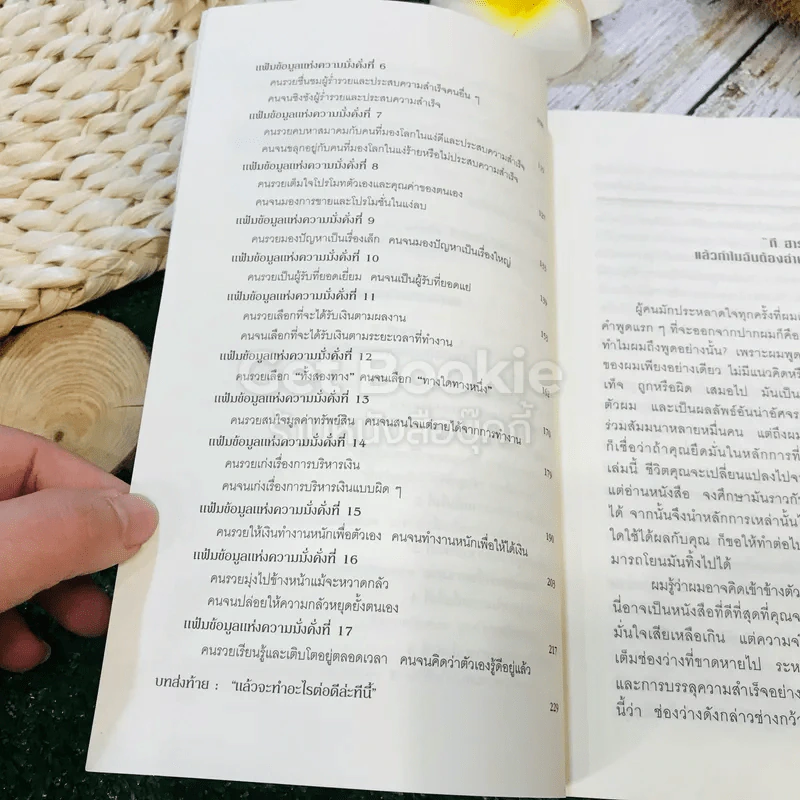 แฟ้มข้อมูลแห่งความมั่งคั่งที่ 6
คนรวยชื่นชมผู้ร่ำรวยและประสบความสำเร็จคนอื่น ๆ
คนจนชิงชังผู้ร่ำรวยและประสบความสำเร็จ
แฟ้มข้อมูลแห่งความมั่งคั่งที่ 7
คนรวยคบหาสมาคมกับคนที่มองโลกในแง่ดีและประสบความสำเร็จ
คนจนขลุกอยู่กับคนที่มองโลกในแง่ร้ายหรือไม่ประสบความสำเร็จ
แฟ้มข้อมูลแห่งความมั่งคั่งที่ 8
คนรวยเต็มใจโปรโมทตัวเองและคุณค่าของตนเอง
คนจนมองการขายและโปรโมชั่นในแง่ลบ
แฟ้มข้อมูลแห่งความมั่งคั่งที่ 9
คนรวยมองปัญหาเป็นเรื่องเล็ก คนจนมองปัญหาเป็นเรื่องใหญ่
แฟ้มข้อมูลแห่งความมั่งคั่งที่ 10
คนรวยเป็นผู้รับที่ยอดเยี่ยม คนจนเป็นผู้รับที่ยอดแย่
แฟ้มข้อมูลแห่งความมั่งคั่งที่ 11
คนรวยเลือกที่จะได้รับเงินตามผลงาน
คนจนเลือกที่จะได้รับเงินตามระยะเวลาที่ทำงาน
แฟ้มข้อมูลแห่งความมั่งคั่งที่ 12
คนรวยเลือก "ทั้งสองทาง" คนจนเลือก "ทางใดทางหนึ่ง"
แฟ้มข้อมูลแห่งความมั่งคั่งที่ 13
คนรวยสนใจมูลค่าทรัพย์สิน คนจนสนใจแต่รายได้จากการทำงาน 176
แฟ้มข้อมูลแห่งความมั่งคั่งที่ 14
คนรวยเก่งเรื่องการบริหารเงิน 179
คนจนเก่งเรื่องการบริหารเงินแบบผิด ๆ
แฟ้มข้อมูลแห่งความมั่งคั่งที่ 15
คนรวยให้เงินทำงานหนักเพื่อตัวเอง คนจนทำงานหนักเพื่อให้ได้เงิน 190
แฟ้มข้อมูลแห่งความมั่งคั่งที่ 16
คนรวยมุ่งไปข้างหน้าแม้จะหวาดกลัว 203
คนจนปล่อยให้ความกลัวหยุดยั้งตนเอง
แฟ้มข้อมูลแห่งความมั่งคั่งที่ 17
คนรวยเรียนรู้และเติบโตอยู่ตลอดเวลา คนจนคิดว่าตัวเองรู้ดีอยู่แล้ว 217
บทส่งท้าย : "แล้วจะทำอะไรต่อดีล่ะทีนี้" 229
Get Bookie
ร้านหนังสือบุ๊กกี้
ผู้คนมักประหลาดใจทุกครั้งที่ผม
คำพูดแรก ๆ ที่จะออกจากปากผมก็คือ
ทำไมผมถึงพูดอย่างนั้น? เพราะผมพูด
ของผมเพียงอย่างเดียว ไม่มีแนวคิดหรือ
เท็จ ถูกหรือผิด เสมอไป มันเป็น
ตัวผม และเป็นผลลัพธ์อันน่าอัศจร
ร่วมสัมมนาหลายหมื่นคน แต่ถึงผม
ก็เชื่อว่าถ้าคุณยึดมั่นในหลักการที่
เล่มนี้ ชีวิตคุณจะเปลี่ยนแปลงไปจ
แต่อ่านหนังสือ จงศึกษามันราวกับ
ได้ จากนั้นจึงนำหลักการเหล่านั้นไ
ใดใช้ได้ผลกับคุณ ก็ขอให้ทำต่อไป
มารถโยนมันทิ้งไปได้
ผมรู้ว่าผมอาจคิดเข้าข้างตัว
นี่อาจเป็นหนังสือที่ดีที่สุดที่คุณจ
มั่นใจเสียเหลือเกิน แต่ความจ
เต็มช่องว่างที่ขาดหายไป ระห
และการบรรลุความสำเร็จอย่าง
นี้ว่า ช่องว่างดังกล่าวช่างกว้า